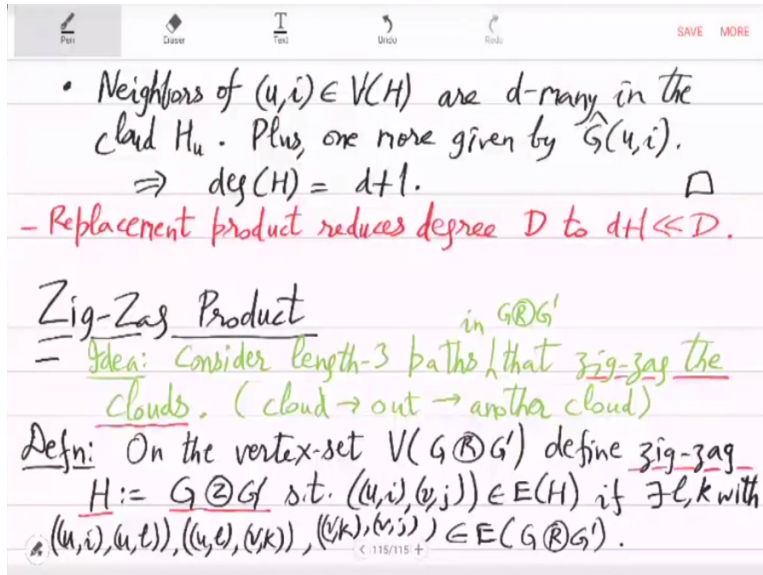 Pen Eraser Text Undo Redo SAVE MORE
• Neighbors of (u,i) ∈ V(H) are d-many in the
cloud Hu. Plus, one more given by Ĝ(u,i).
⇒ deg(H) = d+1. □
- Replacement product reduces degree D to d+1 << D.
Zig-Zag Product
in GⓇG'
- Idea: Consider length-3 paths that zig-zag the
clouds. (cloud → out → another cloud)
Defn: On the vertex-set V(GⓇG') define zig-zag
H := GⓏG' s.t. ((u,i),(v,j)) ∈ E(H) if ∃ℓ,k with
((u,i),(u,ℓ)), ((u,ℓ),(v,k)), ((v,k),(v,j)) ∈ E(GⓇG').
< 115/115 +